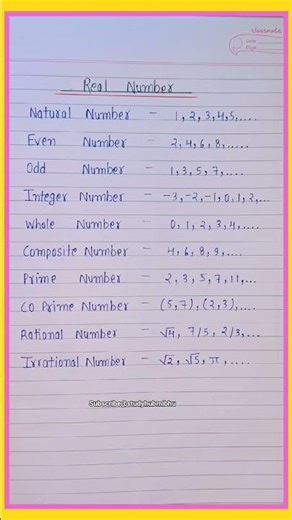 classmate
Date
Page
Real Number
Natural Number - 1, 2, 3, 4, 5, ....
Even Number - 2, 4, 6, 8, .....
Odd Number - 1, 3, 5, 7, ....
Integer Number - -3, -2, -1, 0, 1, 2, ...
Whole Number - 0, 1, 2, 3, 4, ....
Composite Number - 4, 6, 8, 9, ....
Prime Number - 2, 3, 5, 7, 11, ...
CO Prime Number - (5, 7), (2, 3), ....
Rational Number - √4, 7/5, 2/3, ...
Irrational Number - √2, √5, π, ....
Subscribe@studyhubmibhu